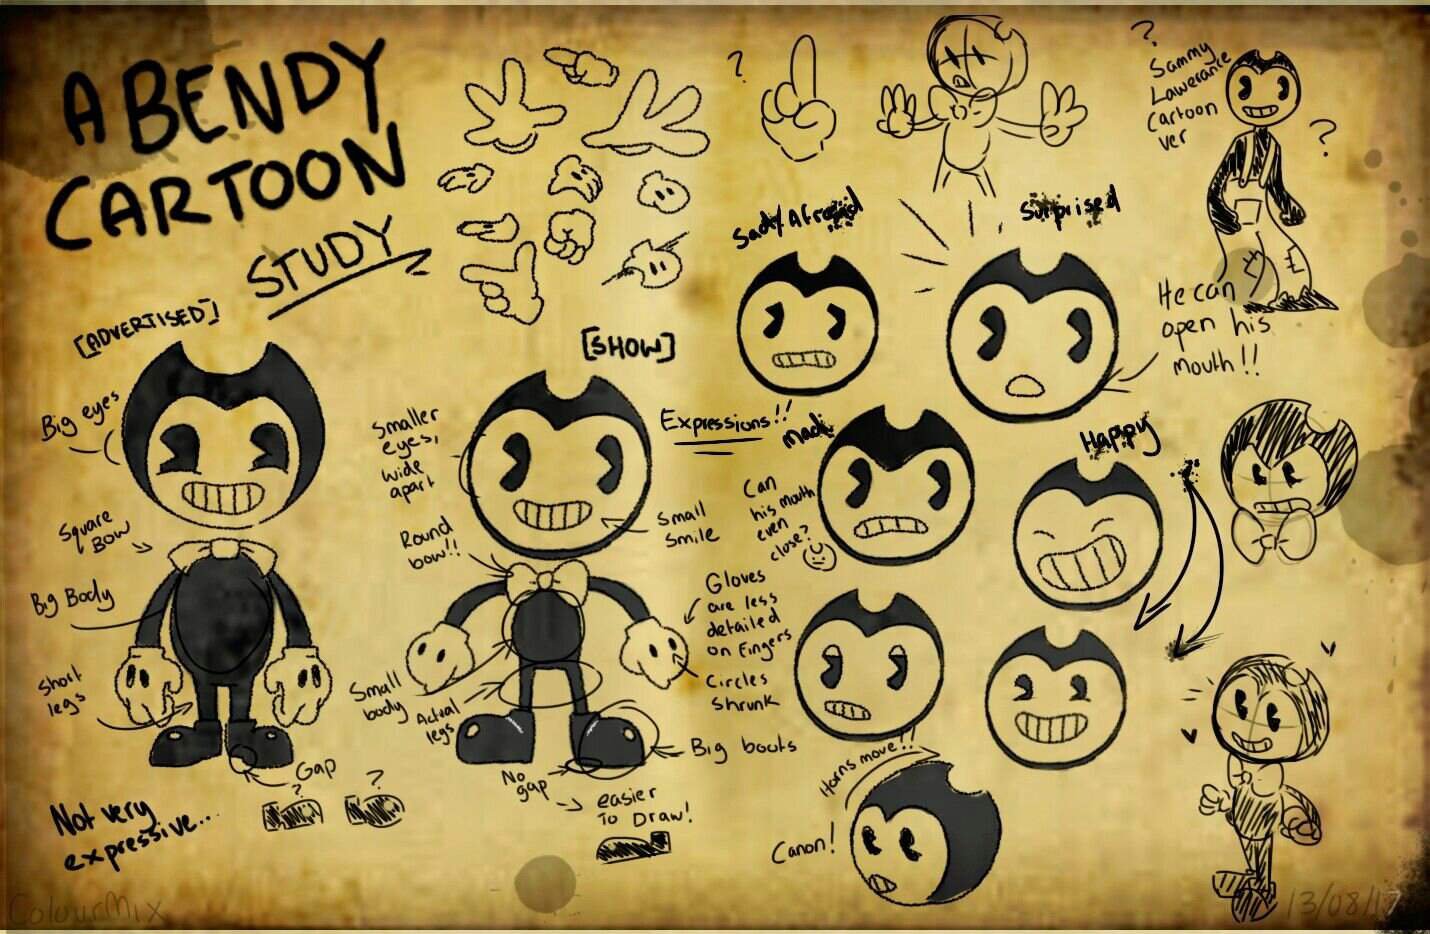 A BENDY
CARTOON
STUDY
[ADVERTISED]
Big eyes
Square
Bow
Big Body
Short
legs
Gap
?
?
Not very
expressive...
[SHOW]
Smaller
eyes,
wide
apart
Round
bow!!
Small
body
Actual
legs
No
gap
easier
To Draw!
Small
Smile
Gloves
are less
detailed
on Fingers
Circles
Shrunk
Big boots
?
Sad/Afraid
Surprised
He can
open his
mouth!!
Expressions!!
Mad
Can
his mouth
even
close?
Happy
Horns move!!
Canon!
?
Sammy
Lawerance
Cartoon
ver
?
ColourMix